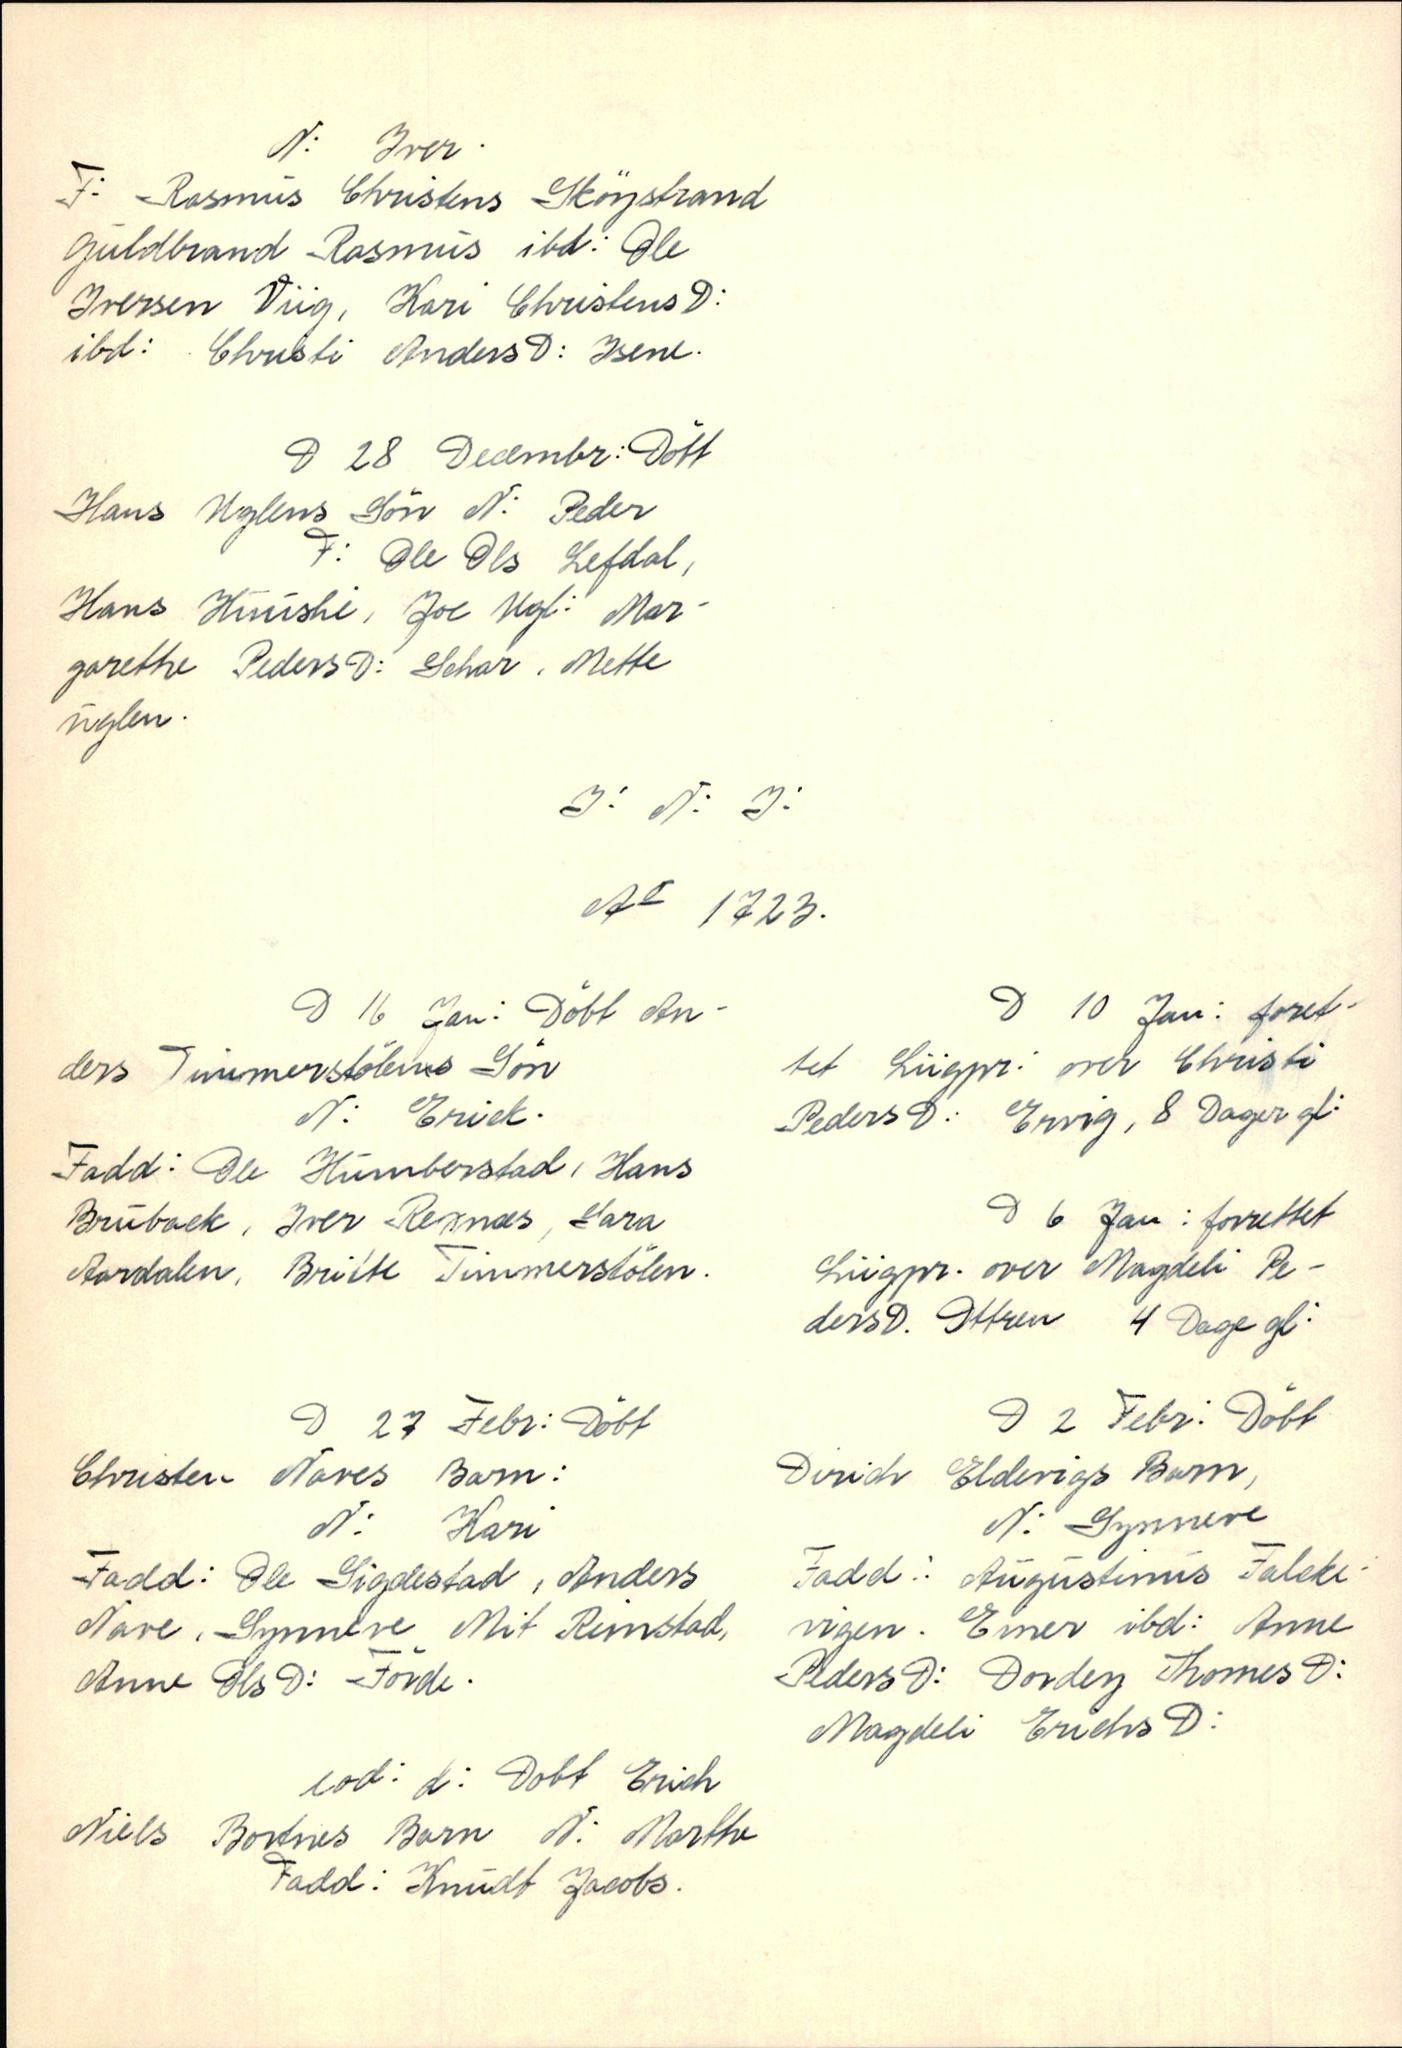 N: Iver.
F: Rasmus Christens Sköystrand
Guldbrand Rasmus ibd: Ole
Iversen Viig, Kari Christens D:
ibd: Christi Anders D: Isene.
D 28 Decembr: Dött
Hans Uglens Sön N: Peder
F: Ole Ols Lefdal,
Hans Huushi, Joe Ugl: Mar-
garethe Peders D: Schar, Mette
uglen.
I: N: I:
Ao 1723.
D 16 Jan: Döbt An-
ders Timmerstölens Sön
N: Erick.
Fadd: Ole Humberstad, Hans
Brubaek, Iver Rexnæs, Sara
Aardalen, Britte Timmerstölen.
D 27 Febr: Döbt
Christen Naves Barn:
N: Kari
Fadd: Ole Sigdestad, Anders
Nave, Synneve Mit Rimstad,
Anne Ols D: Förde.
eod: d: Dobt Erich
Niels Bortnes Barn N: Marthe
Fadd: Knudt Jacobs.
D 10 Jan: foret-
tet Liigpr: over Christi
Peders D: Ervig, 8 Dager gl:
D 6 Jan: forrettet
Liigpr. over Magdeli Pe-
ders D. Ottren 4 Dage gl:
D 2 Febr: Döbt
Dirich Eldevigs Barn,
N: Synneve
Fadd: Augustinus Falcke-
vigen. Emer ibd: Anne
Peders D: Dordey Thomes D:
Magdeli Erichs D: